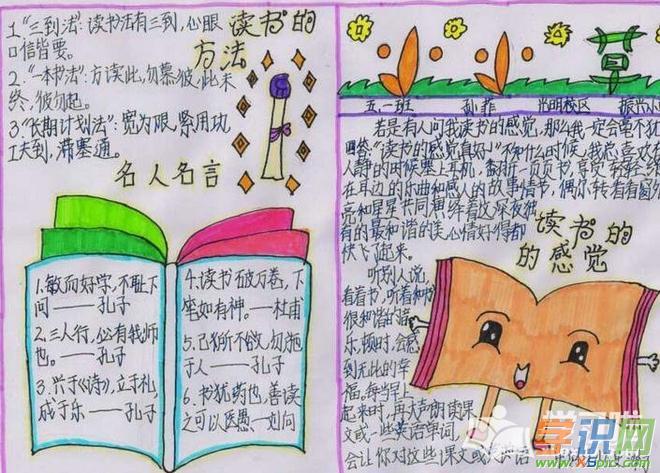 读书的
方法
1“三到法”:读书法有三到,心眼
口信皆要。
2.“一本书法”:方读此,勿慕彼,此未
终,彼勿起。
3“长期计划法”:宽为限,紧用功,
工夫到,滞塞通。
名人名言
1.敏而好学,不耻下
问——孔子
2.三人行,必有我师
也。——孔子
3.兴于《诗》,立于礼,
成于乐——孔子
4.读书破万卷,下
笔如有神。——杜甫
5.己所不欲,勿施
于人——孔子
6.书犹药也,善读
之可以医愚—刘向
草
五.一班 孙菲 光明校区 振兴小
若是有人问我读书的感觉,那么我一定会毫不犹
“读书的感觉真好!”不知什么时候,我总喜欢在
人静的时候塞上耳机,翻开一页页书,享受轻轻
在耳边的乐曲和感人的故事情节,偶尔转着看窗外
亮和星星共同
有的最和谐的美心情好得都
快飞起来。
读书的
的感觉
听别人说,
看着书,听着
很和谐的音
乐,顿时,会感
到无此的幸
福,每当早上
起来时,再大声的读课
文或一些英语单词
会让你对这些课文或
学识网
www.xspic.com